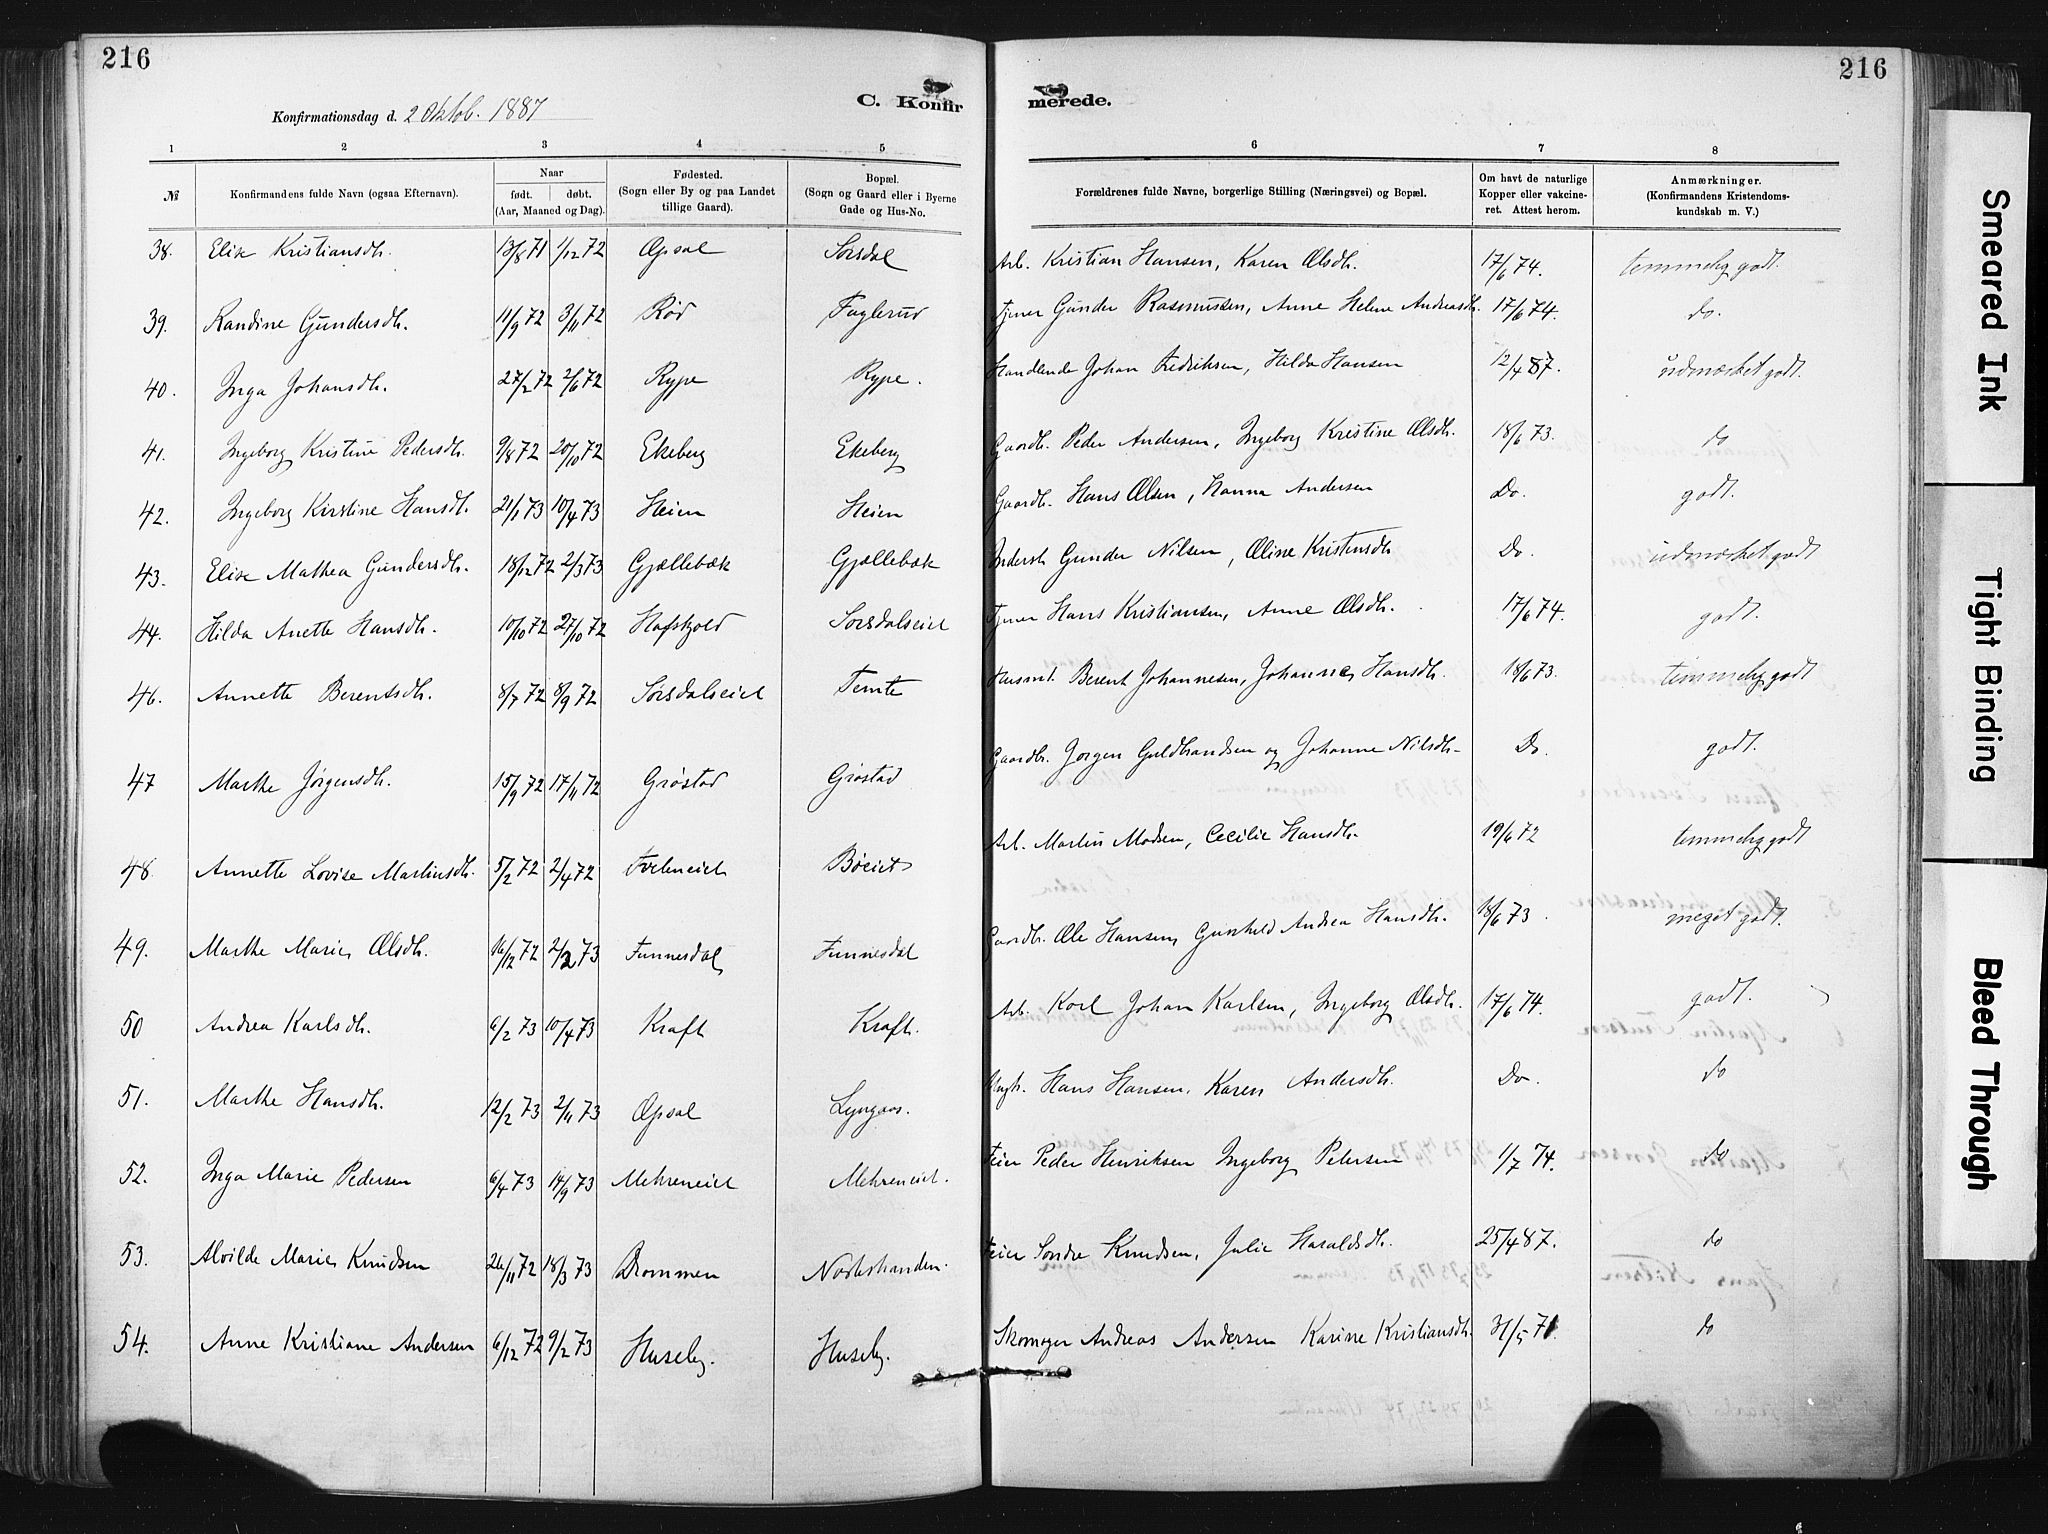 216
216
C. Konfir
merede.
Konfirmationsdag d. 2 Oktob. 1887
1 2 3 4 5 6 7 8
№
Konfirmandens fulde Navn (ogsaa Efternavn).
Naar
født. døbt.
(Aar, Maaned og Dag).
Fødested.
(Sogn eller By og paa Landet
tillige Gaard).
Bopæl.
(Sogn og Gaard eller i Byerne
Gade og Hus-No.
Forældrenes fulde Navne, borgerlige Stilling (Næringsvei) og Bopæl.
Om havt de naturlige
Kopper eller vakcine-
ret. Attest herom.
Anmærkninger.
(Konfirmandens Kristendoms-
kundskab m. V.)
38. Elise Kristiansdtr. 13/8 71 1/12 72 Opsal Sorsdal Arb. Kristian Hansen, Karen Olsdtr. 17/6 74. temmelig godt.
39. Randine Gundersdtr. 11/9 72 3/11 72 Rød Faglerud Tjener Gunder Rasmussen, Anne Helene Andreasdtr. 17/6 74. do.
40. Inga Johansdtr. 27/2 72 2/6 72 Rype Rype. Handlende Johan Fredriksen, Hilda Hansen 12/4 87. udmærket godt.
41. Ingeborg Kristine Pedersdtr. 9/8 72 20/10 72 Ekeberg Ekeberg Gaardbr. Peder Andersen, Ingeborg Kristine Olsdtr. 18/6 73. do
42. Ingeborg Kirstine Hansdtr. 21/1 73 10/4 73 Heien Heien Gaardbr. Hans Olsen, Hanna Andersen Do. godt.
43. Elise Mathea Gundersdtr. 18/12 72 2/3 73 Gjællebæk Gjællebæk Inderst Gunder Nilsen, Oline Kristensdtr Do. udmærket godt
44. Hilda Anette Hansdtr. 10/10 72 27/10 72 Hafskjold Sorsdalseiet Tjener Hans Kristiansen, Anne Olsdtr. 17/6 74. godt.
46. Annette Berentsdtr. 8/7 72 8/9 72 Sorsdalseiet Temte Husmd. Berent Johannesen, Johanne Hansdtr. 18/6 73. temmelig godt
47 Marthe Jørgensdtr. 15/9 72 17/11 72 Grøstad Grøstad Gaardbr. Jørgen Guldbrandsen og Johanne Nilsdtr. Do. godt.
48. Annette Lovise Martinsdtr. 5/2 72 2/4 72 Bøeiet Arb. Martin Madsen, Cecilie Hansdtr. 19/6 72 temmelig godt
49. Marthe Marie Olsdtr. 16/12 72 2/2 73 Funnesdal Funnesdal Gaardbr. Ole Hansen, Gunhild Andrea Hansdtr. 18/6 73. meget godt.
50 Andrea Karlsdtr. 6/2 73 10/4 73 Kraft Kraft. Arb. Karl Johan Karlsen, Ingeborg Olsdtr. 17/6 74. godt.
51. Marthe Hansdtr. 12/2 73 2/11 73 Opsal Lyngaas. Hans Hansen, Karen Andersdtr. Do. do
52. Inga Marie Pedersen 6/4 73 14/9 73 Mehreneiet Mehreneiet. Feier Peder Henriksen Ingeborg Petersen 1/7 74. do
53. Alvilde Marie Knudsen 26/11 72 18/3 73 Drammen Nordstranden. Feier Søndre Knudsen, Julie Haraldsdtr. 25/4 87. do
54. Anne Kristiane Andersen 6/12 72 9/2 73 Huseby. Huseby. Skomager Andreas Andersen Karine Kristiansdtr. 31/5 71. do
Smeared Ink
Tight Binding
Bleed Through